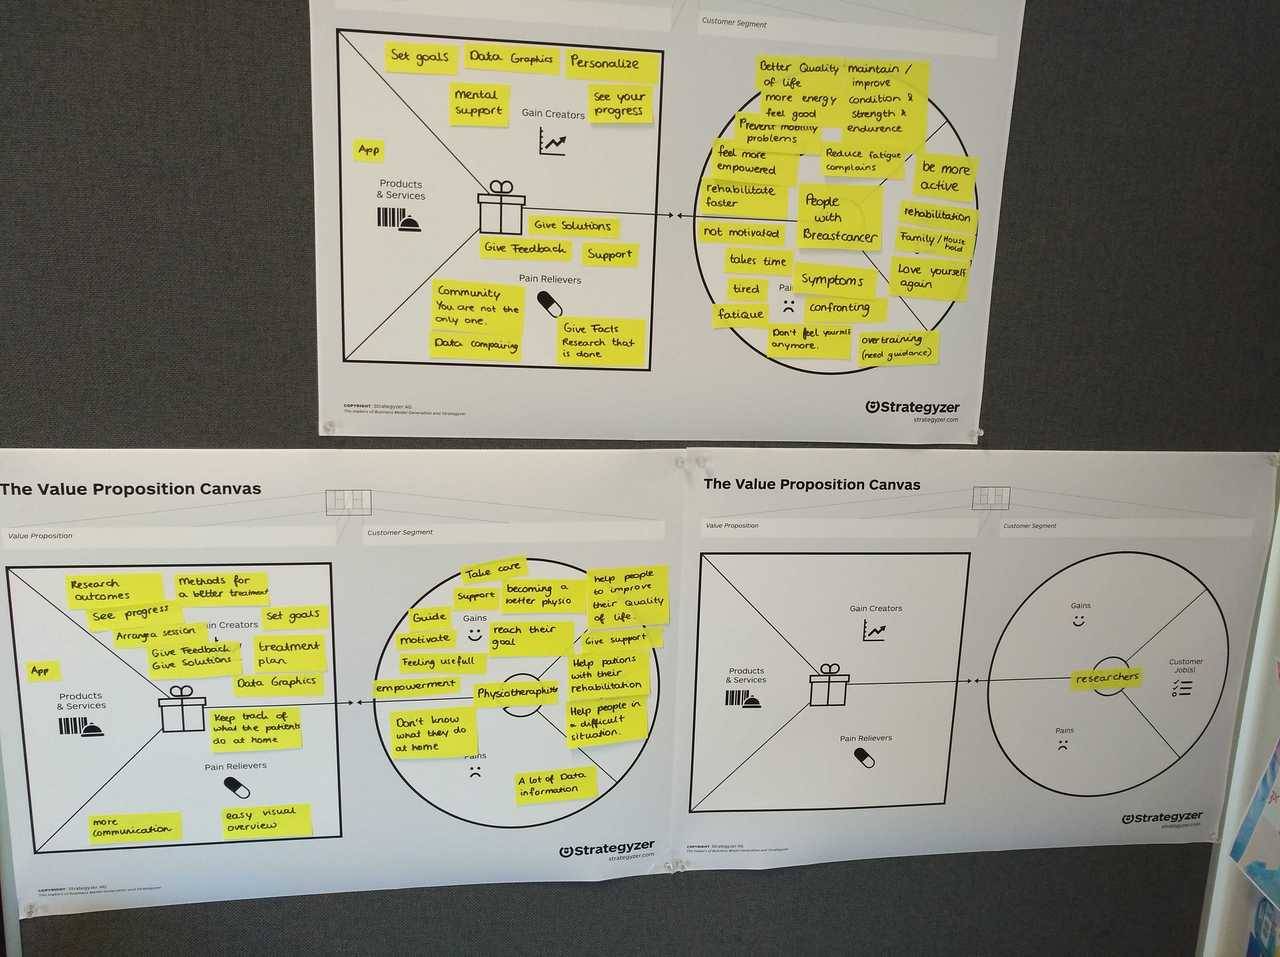 Customer Segment
Set goals
Data Graphics
Personalize
mental
support
See your
progress
Gain Creators
App
Products
& Services
Give Solutions
Give Feedback
Support
Pain Relievers
Community
You are not the
only one.
Data compairing
Give Facts
Research that
is done
Better Quality
of life
more energy
feel good
maintain /
improve
condition &
strength &
endurence
Prevent mobility
problems
feel more
empowered
Reduce fatigue
complains
be more
active
rehabilitate
faster
People
with
Breastcancer
rehabilitation
not motivated
Family / House
hold
takes time
Symptoms
Love yourself
again
tired
Pai
confronting
fatique
Don't feel yourself
anymore.
overtraining
(need guidance)
COPYRIGHT: Strategyzer AG
The makers of Business Model Generation and Strategyzer
Strategyzer
strategyzer.com
The Value Proposition Canvas
Value Proposition
Customer Segment
Research
outcomes
Methods for
a better treatment
See progress
Set goals
in Creators
Arrange a session
Give Feedback
Give Solutions
treatment
plan
App
Data Graphics
Products
& Services
Keep track of
what the patients
do at home
Pain Relievers
more
communication
easy visual
overview
Take care
Support
becoming a
better physio
help people
to improve
their Quality
of life.
Guide
Gains
motivate
reach their
goal
Give support
Feeling usefull
Help patiens
with their
rehabilitation
empowerment
Physiotheraphists
Don't know
what they do
at home
Help people in
a difficult
situation.
Pains
A lot of Data
information
COPYRIGHT: Strategyzer AG
The makers of Business Model Generation and Strategyzer
Strategyzer
strategyzer.com
The Value Proposition Canvas
Value Proposition
Customer Segment
Gain Creators
Products
& Services
Pain Relievers
Gains
researchers
Customer
Job(s)
Pains
COPYRIGHT: Strategyzer AG
The makers of Business Model Generation and Strategyzer
Strategyzer
strategyzer.com